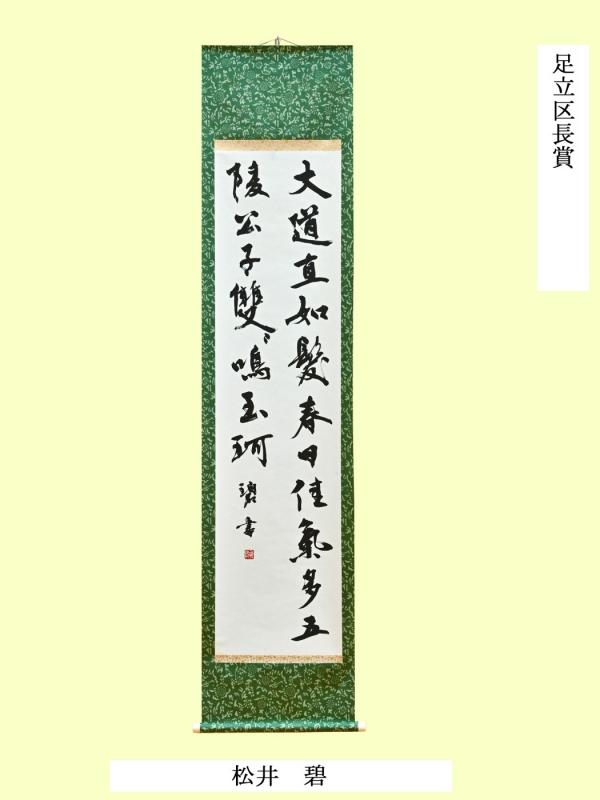 足立区長賞
大道直如髮春日佳氣多五
陵公子雙〻鳴玉珂
碧書
松井 碧